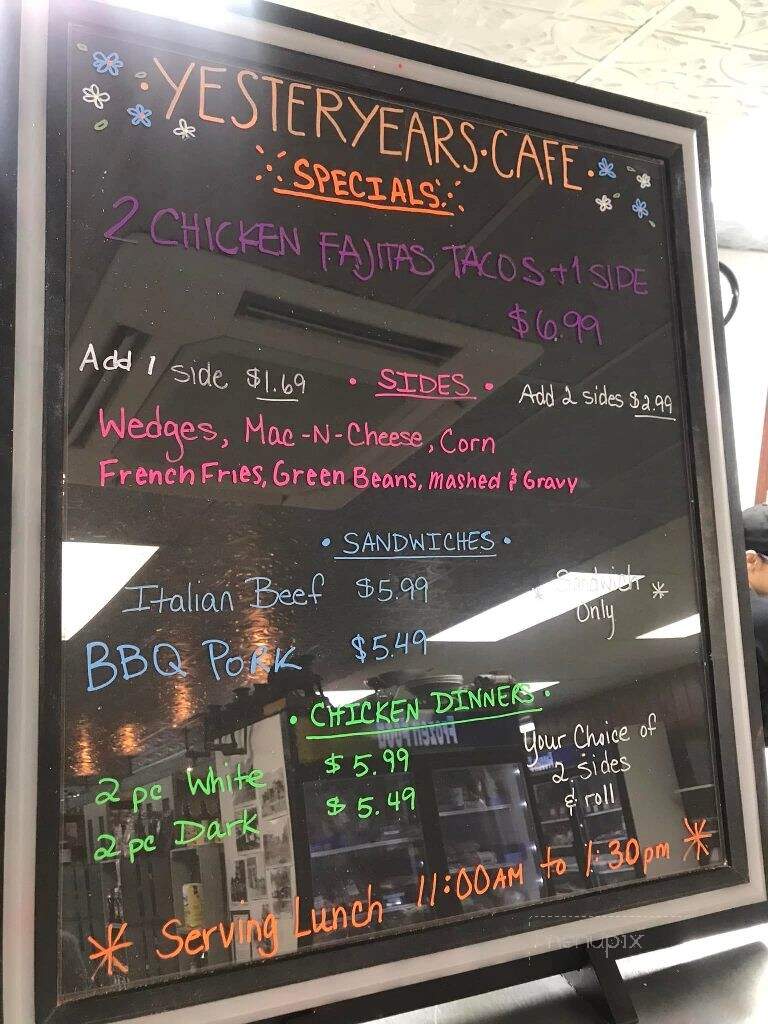 ·YESTERYEARS·CAFE·
SPECIALS
2 CHICKEN FAJITAS TACOS + 1 SIDE
$6.99
Add 1 side $1.69
· SIDES ·
Add 2 sides $2.99
Wedges, Mac-N-Cheese, Corn
French Fries, Green Beans, Mashed & Gravy
· SANDWICHES ·
Italian Beef $5.99
* Sandwich *
Only
BBQ PORK $5.49
· CHICKEN DINNERS ·
2 pc White $5.99
2 pc Dark $5.49
Your Choice of
2 sides
& roll
* Serving Lunch 11:00AM to 1:30pm *
menupix